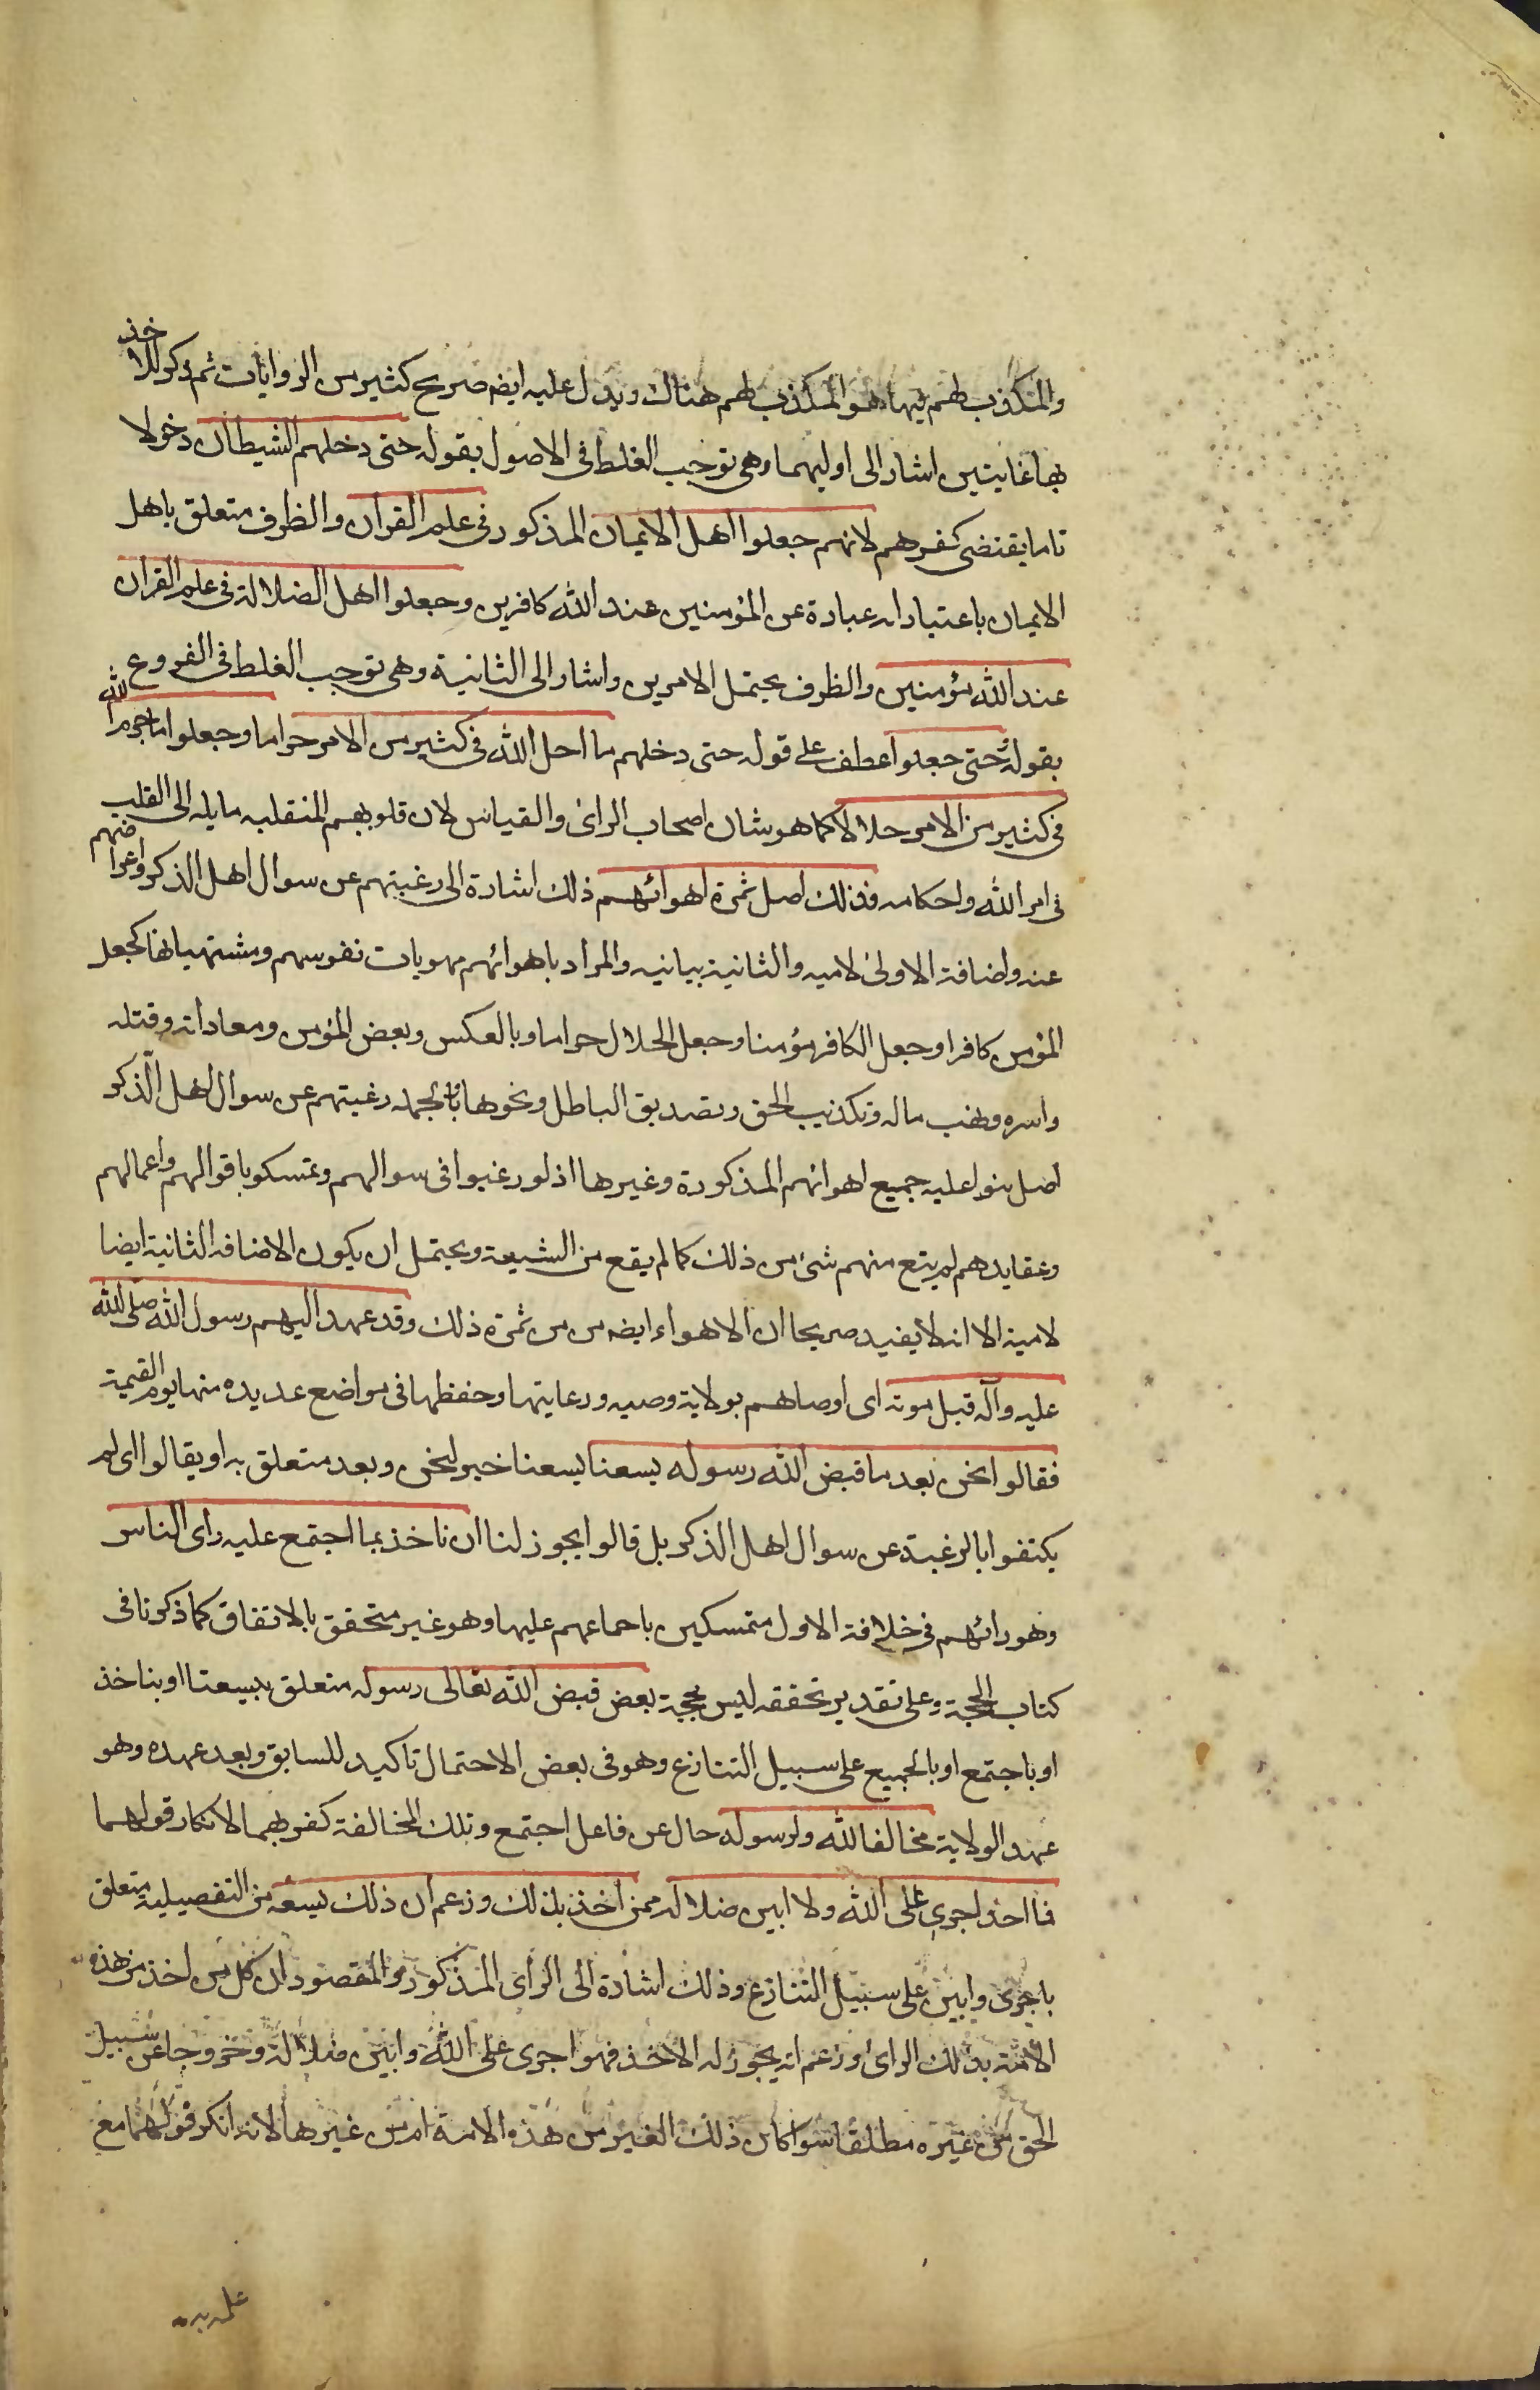 والمكذب لهم فيها هو المكذب لهم هناك ويدل عليه ايضه صريح كثير من الروايات ثم ذكر للاخذ
بها غايتين اشار الى اوليهما وهى توجب الغلط فى الاصول بقوله حتى دخلهم الشيطان دخولا
تاما يقتضى كفرهم لانهم جعلوا اهل الايمان المذكور فى علم القران والظرف متعلق باهل
الايمان باعتبار انه عبادة عن المؤمنين عند الله كافرين وجعلوا اهل الضلالة فى علم القران
عند الله مؤمنين والظرف يحتمل الامرين واشار الى الثانية وهى توجب الغلط فى الفروع
بقوله حتى جعلوا عطف على قوله حتى دخلهم ما احل الله فى كثير من الامر حراما وجعلوا ما حرم الله
فى كثير من الامر حلالا كما هو شان اصحاب الراى والقياس لان قلوبهم المنقلبه مايله الى القلب
فى امر الله واحكامه فذلك اصل ثمرة اهوائهم ذلك اشارة الى رغبتهم عن سوال اهل الذكر واعراضهم
عنه واضافة الاولى لاميه والثانية بيانيه والمراد باهوائهم مهويات نفوسهم ومشتهياتها كجعل
المؤمن كافرا وجعل الكافر مؤمنا وجعل الحلال حراما وبالعكس وبغض المؤمن ومعاداته وقتله
واسره ونهب ماله وتكذيب الحق وتصديق الباطل ونحوها وبالجمله رغبتهم عن سوال اهل الذكر
اصل بنوا عليه جميع اهوائهم المذكورة وغيرها اذ لو رغبوا فى سوالهم وتمسكو باقوالهم واعمالهم
وعقايدهم لم يقع منهم شئ من ذلك كما لم يقع من الشيعة ويحتمل ان يكون الاضافه الثانية ايضا
لامية الا انه لا يفيد صريحا ان الاهواء ايضه من من ثمرة ذلك وقد عهد اليهم رسول الله صلى الله
عليه وآله قبل موته اى اوصاهم بولاية وصيه ورعايتها وحفظها فى مواضع عديده منها يوم القيمة
فقالوا نحن بعد ما قبض الله رسوله يسعنا يسعنا خبر لنحن وبعد متعلق به او بقالوا اى لم
يكتفوا بالرغبة عن سوال اهل الذكر بل قالوا يجوز لنا ان ناخذ بما اجتمع عليه راى الناس
وهو رائهم فى خلافة الاول متمسكين باجماعهم عليها وهو غير متحقق بالاتفاق كما ذكرنا فى
كتاب الحجة وعلى تقدير تحققه ليس بحجة بعض قبض الله تعالى رسوله متعلق بيسعنا او بناخذ
او باجتمع او بالجميع على سبيل التنازع وهو فى بعض الاحتمال تاكيد للسابق وبعد عهده وهو
عهد الولاية مخالفا لله ولرسوله حال عن فاعل اجتمع وتلك المخالفة كفر بهما لانكار قولهما
فما احد اجرى على الله ولا ابين ضلاله ممن اخذ بذلك وزعم ان ذلك يسعه من التفصيلية متعلق
باجرى وابين على سبيل التنازع وذلك اشارة الى الراى المذكور والمقصود ان كل من اخذ من هذه
الامة بذلك الراى وزعم انه يجوز له الاخذ فهو اجرى على الله وابين ضلالة وخروجا عن سبيل
الحق من غيره مطلقا سوا كان ذلك الغير من هذه الامة ام من غيرها لانه انكر قولهما مع